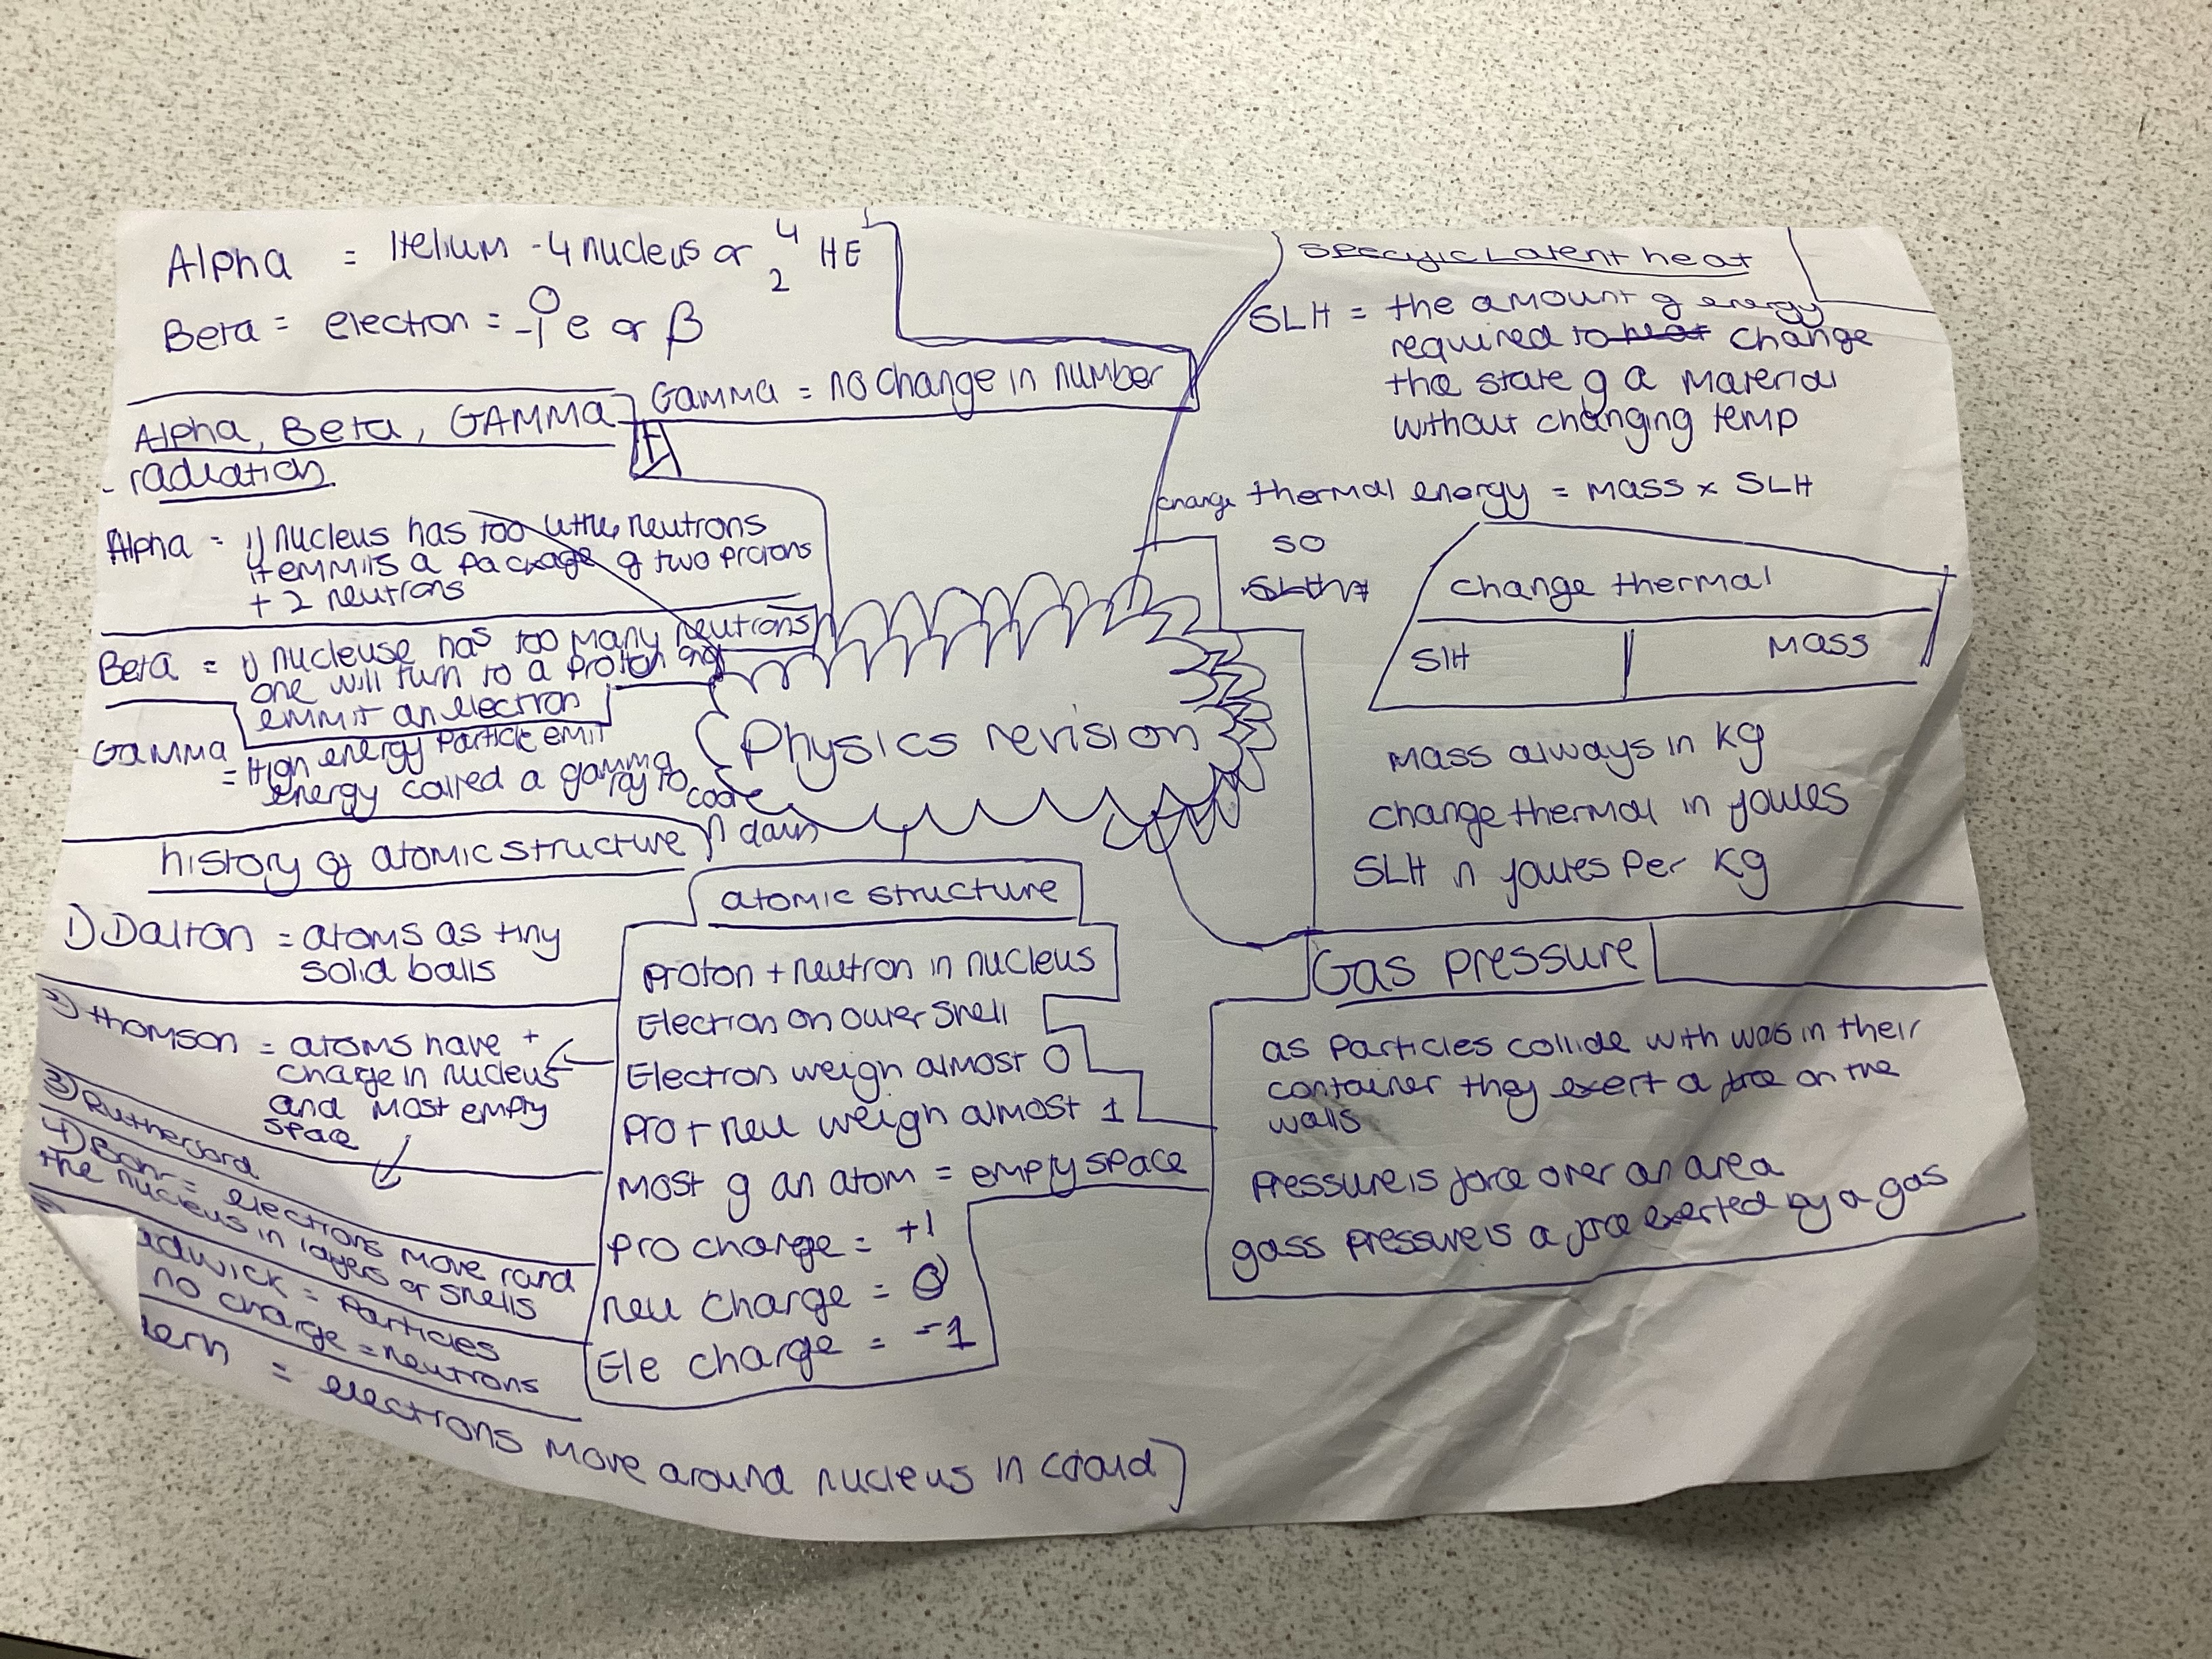 Alpha = Helium -4 nucleus or 4 2 HE
Beta = electron = 0 -1 e or β
Gamma = no change in number
Alpha, Beta, GAMMA
- radiation
Alpha = if nucleus has too little neutrons
it emmits a package of two protons
+ 2 neutrons
Beta = if nucleuse has too many neutrons
one will turn to a proton and
emmit an electron
Gamma = High energy particle emit
energy called a gamma ray to cool
it down
Physics revision
history of atomic structure
1) Dalton = atoms as tiny
solid balls
2) thomson = atoms have +
charge in nucleus
and most empty
space
3) Rutherford
4) Bohr = electrons move rand
the nucleus in layers or shells
adwick = Particles
no charge = neutrons
ern = electrons move around nucleus in cloud
atomic structure
proton + neutron in nucleus
Electron on outer shell
Electron weigh almost 0
pro + neu weigh almost 1
most of an atom = empty space
pro charge = +1
neu charge = 0
Ele charge = -1
Specific Latent heat
SLH = the amount of energy
required to heat change
the state of a material
without changing temp
change thermal energy = mass x SLH
so
change thermal
SlH mass
mass always in kg
change thermal in joules
SLH in joules per kg
Gas pressure
as particles collide with was in their
container they exert a force on the
walls
pressure is force over an area
gass pressure is a force exerted by a gas